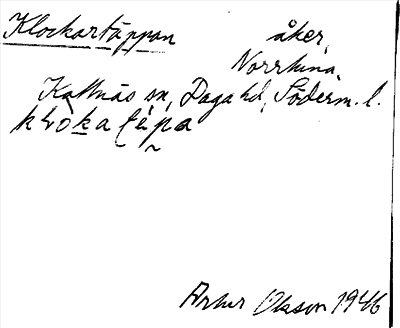 Klockartäppan åker,
Norrkina,
Kattnäs sn, Daga hd, Söderm. l.
klòkatèpa
Artur Olsson 1946